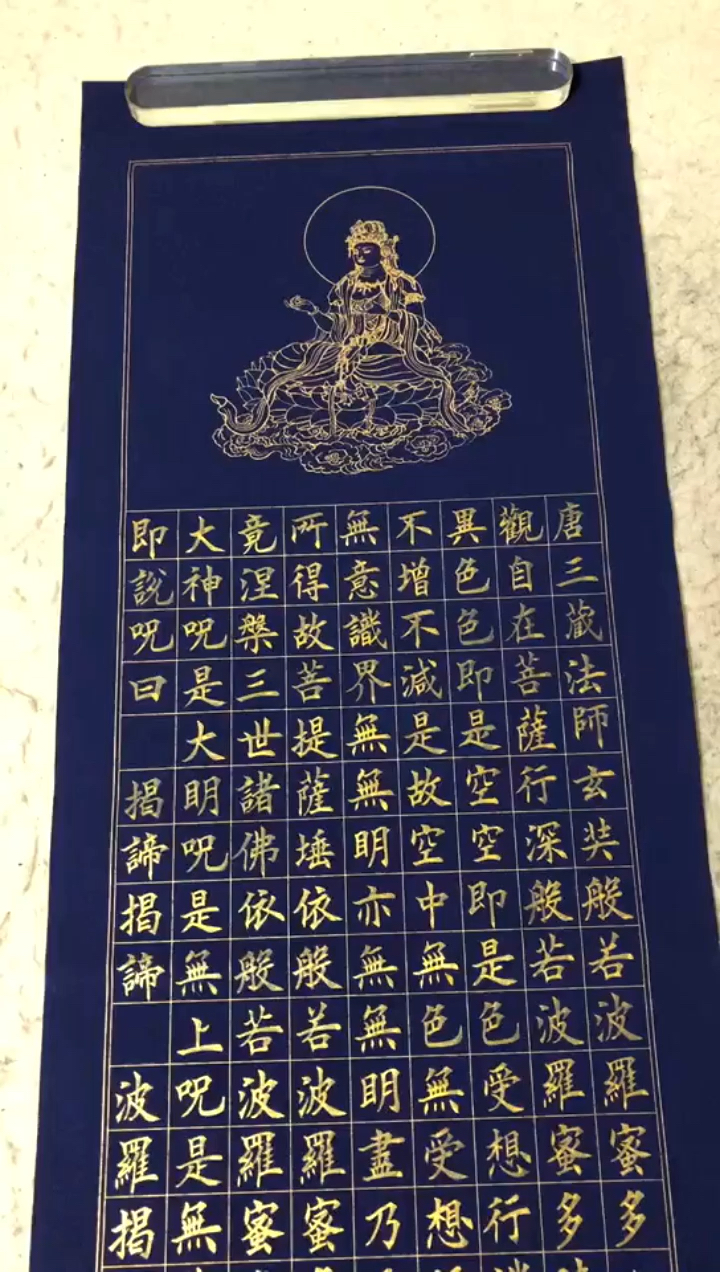 唐三藏法師玄奘般若波羅蜜多
觀自在菩薩行深般若波羅蜜多
異色色即是空空即是色受想行
不增不減是故空中無色無受想
無意識界無無明亦無無明盡乃
所得故菩提薩埵依般若波羅蜜
竟涅槃三世諸佛依般若波羅蜜
大神呪是大明呪是無上呪是無
即說呪曰 揭諦揭諦 波羅揭